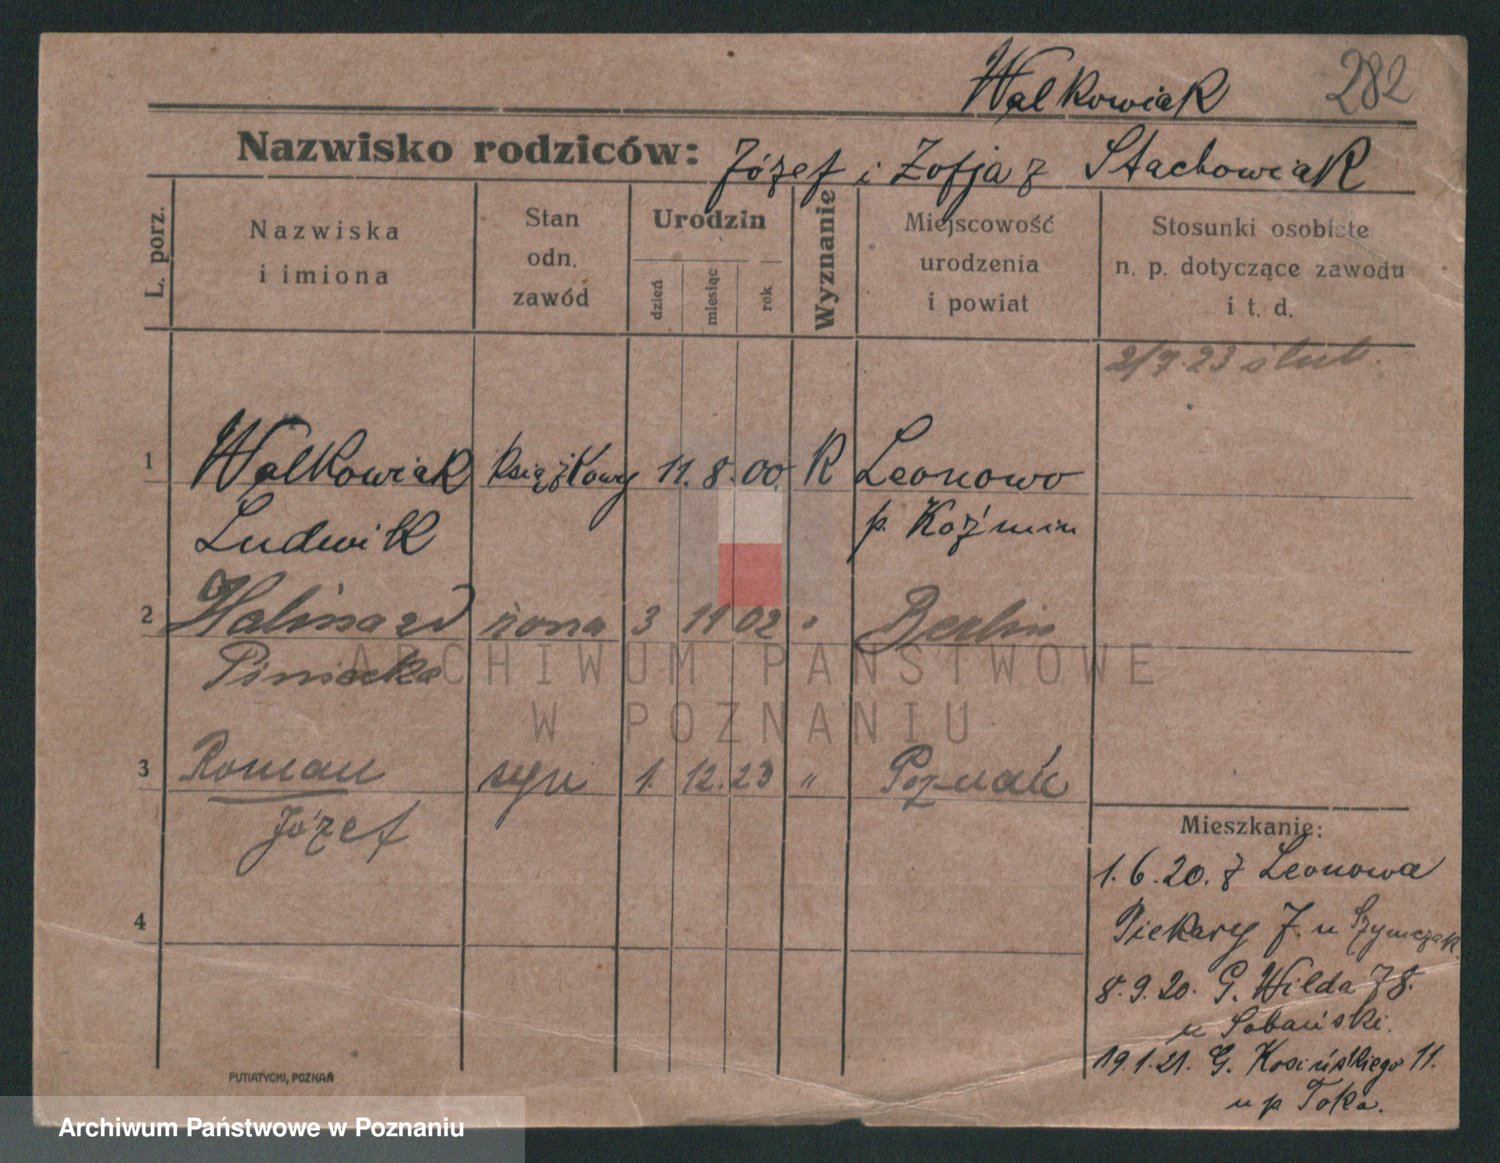 Walkowiak 282
Nazwisko rodziców: Józef i Zofja z Stachowiak
L. porz.
Nazwiska
i imiona
Stan
odn.
zawód
Urodzin
dzień
miesiąc
rok
Wyznanie
Miejscowość
urodzenia
i powiat
Stosunki osobiste
n. p. dotyczące zawodu
i t. d.
2/7.23 ślub.
1 Walkowiak książkowy 11. 8. 00. R Leonowo
Ludwik p. Koźmin
2 Halina zd żona 3 11 02 " Berlin
Piniecka
3 Roman syn 1. 12. 23 " Poznań
Józef
4
Mieszkanie:
1. 6. 20. z Leonowa
Piekary 7. u Szymczak
8. 9. 20. G. Wilda 78.
u Sobański.
19. 1. 21. G. Kosińskiego 11.
u p Toka.
PUTIATYCKI, POZNAŃ
ARCHIWUM PAŃSTWOWE
W POZNANIU
Archiwum Państwowe w Poznaniu